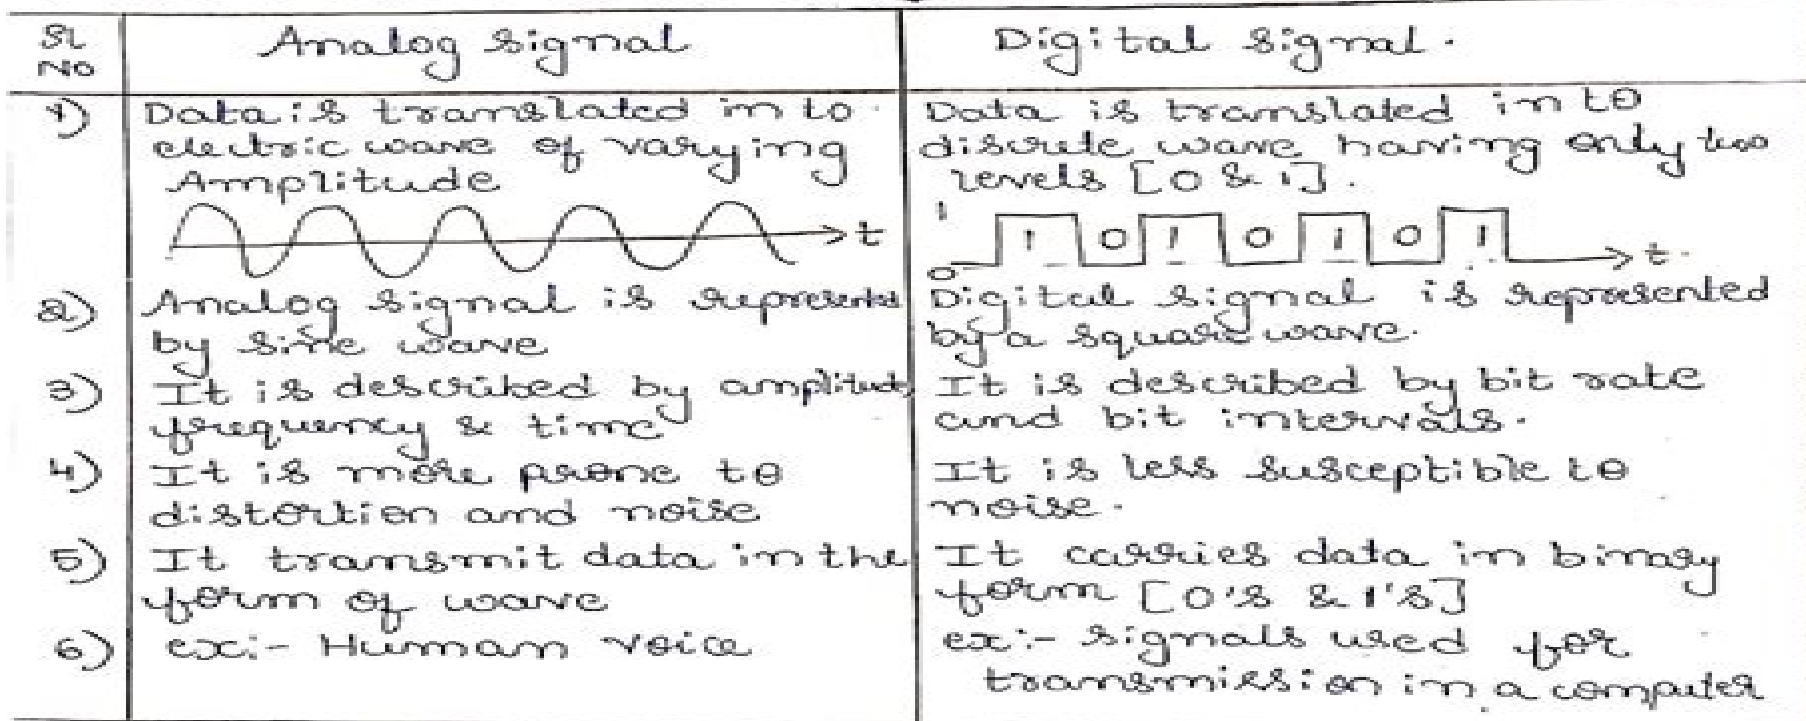 Sl No
Analog signal
Digital signal.
1)
Data is translated in to
electric wave of varying
Amplitude
t
Data is translated in to
discrete wave having only two
levels [0 & 1].
1
1 0 1 0 1 0 1
0
t.
2)
Analog signal is represented
by sine wave
Digital signal is represented
by a square wave.
3)
It is described by amplitude
frequency & time
It is described by bit rate
and bit intervals.
4)
It is more prone to
distortion and noise
It is less susceptible to
noise.
5)
It transmit data in the
form of wave
It carries data in binary
form [0's & 1's]
6)
ex:- Human voice
ex:- signals used for
transmission in a computer